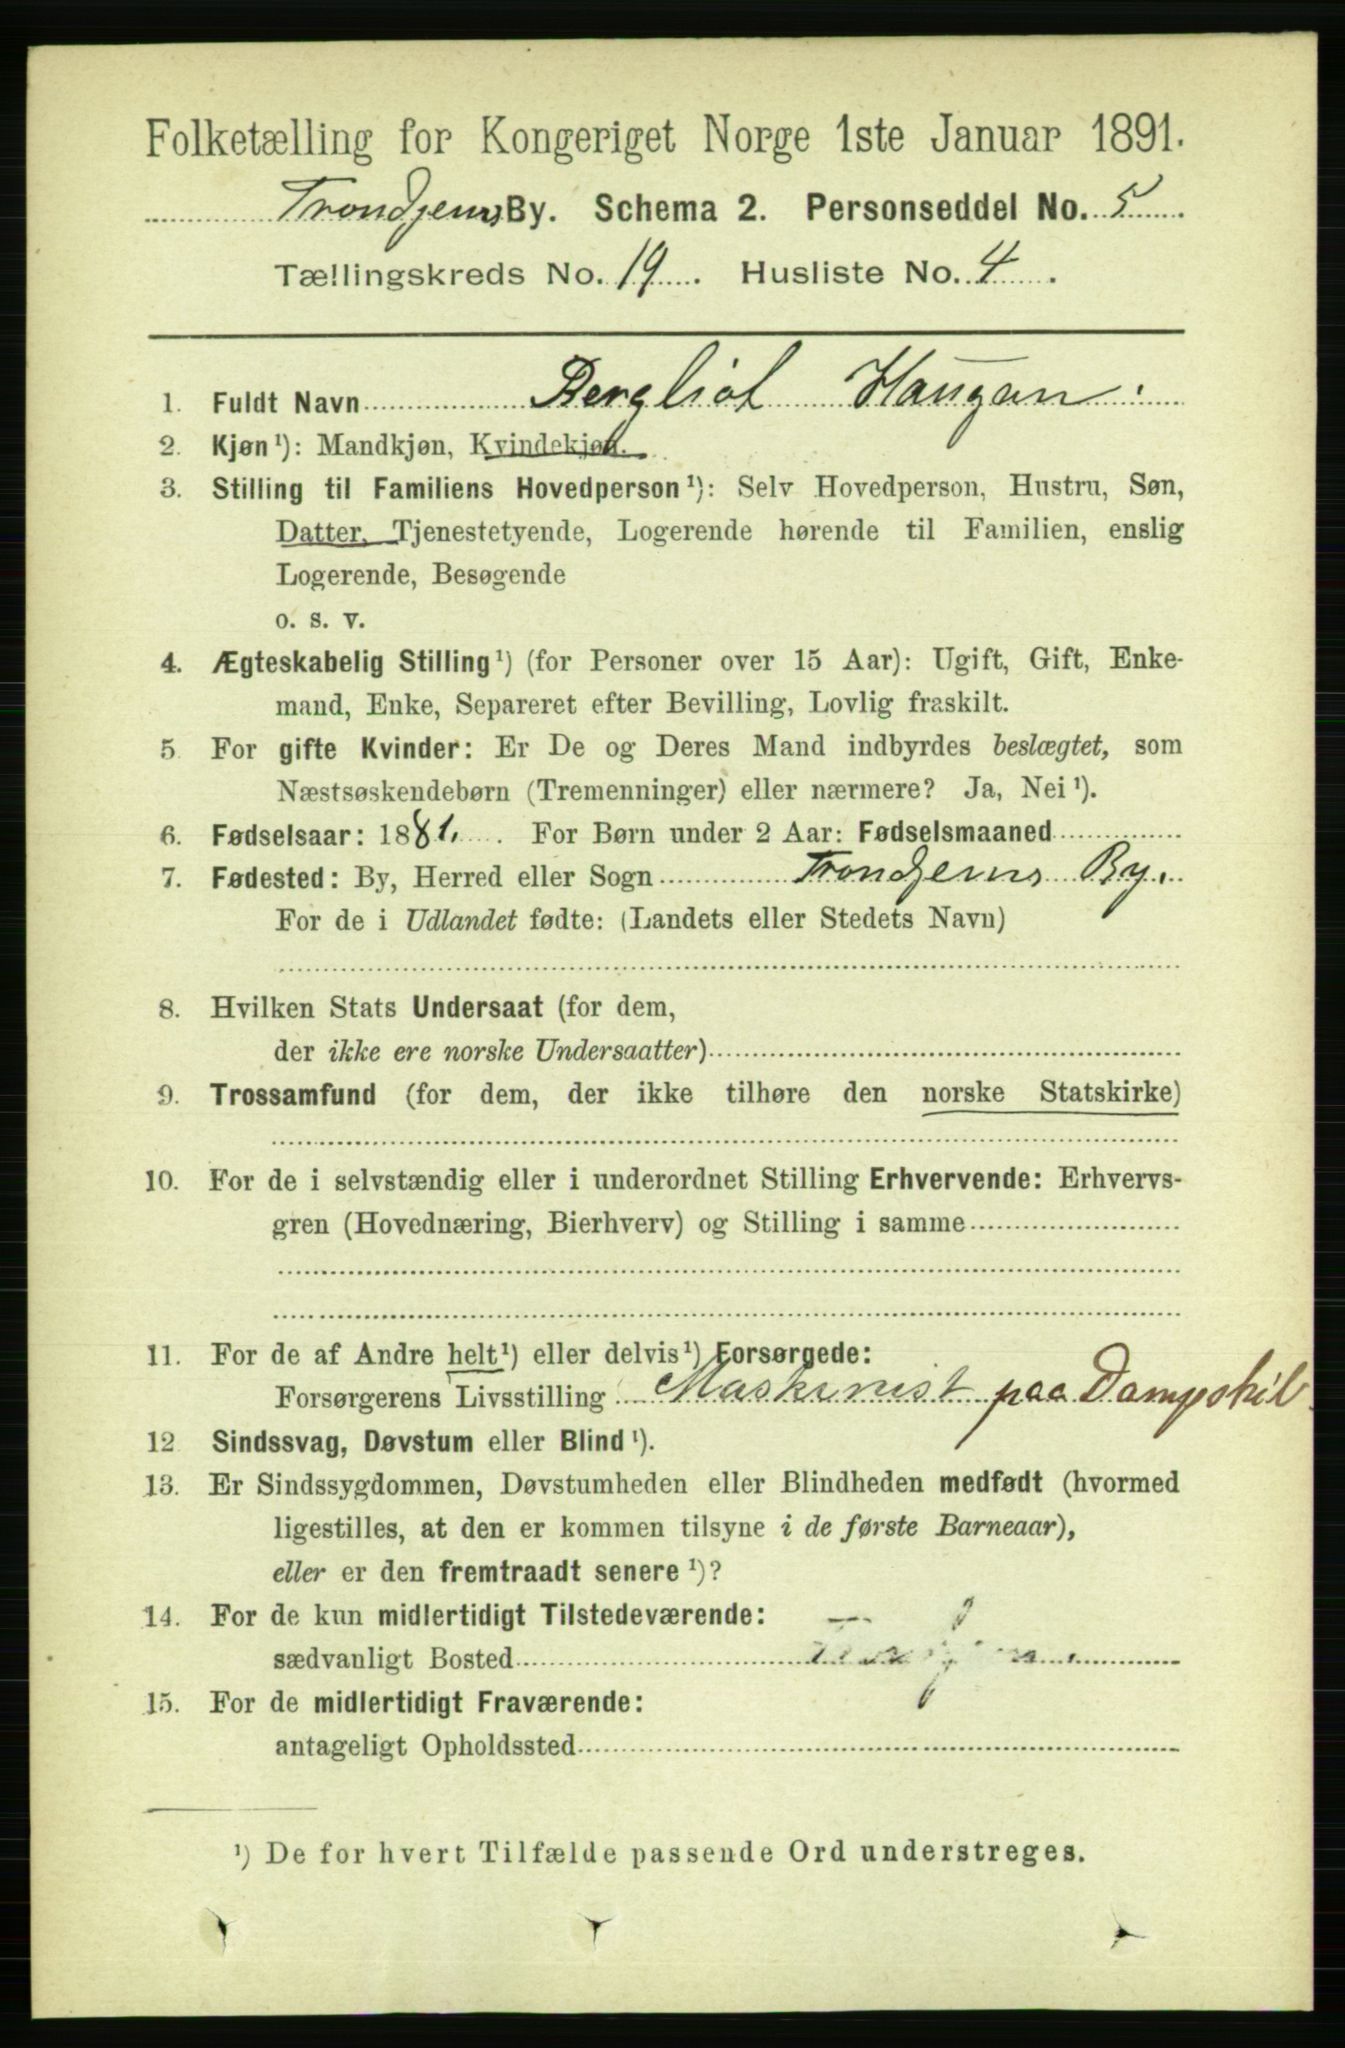 Folketælling for Kongeriget Norge 1ste Januar 1891.
Trondhjems By. Schema 2. Personseddel No. 5
Tællingskreds No. 19. Husliste No. 4.
1. Fuldt Navn Bergliot Haugan.
2. Kjøn ¹): Mandkjøn, Kvindekjøn.
3. Stilling til Familiens Hovedperson ¹): Selv Hovedperson, Hustru, Søn,
Datter, Tjenestetyende, Logerende hørende til Familien, enslig
Logerende, Besøgende
o. s. v.
4. Ægteskabelig Stilling ¹) (for Personer over 15 Aar): Ugift, Gift, Enke-
mand, Enke, Separeret efter Bevilling, Lovlig fraskilt.
5. For gifte Kvinder: Er De og Deres Mand indbyrdes beslægtet, som
Næstsøskendebørn (Tremenninger) eller nærmere? Ja, Nei ¹).
6. Fødselsaar: 1881. For Børn under 2 Aar: Fødselsmaaned
7. Fødested: By, Herred eller Sogn Trondhjems By.
For de i Udlandet fødte: (Landets eller Stedets Navn)
8. Hvilken Stats Undersaat (for dem,
der ikke ere norske Undersaatter)
9. Trossamfund (for dem, der ikke tilhøre den norske Statskirke)
10. For de i selvstændig eller i underordnet Stilling Erhvervende: Erhvervs-
gren (Hovednæring, Bierhverv) og Stilling i samme
11. For de af Andre helt ¹) eller delvis ¹) Forsørgede:
Forsørgerens Livsstilling Maskinist paa Dampskib
12. Sindssvag, Døvstum eller Blind ¹).
13. Er Sindssygdommen, Døvstumheden eller Blindheden medfødt (hvormed
ligestilles, at den er kommen tilsyne i de første Barneaar),
eller er den fremtraadt senere ¹)?
14. For de kun midlertidigt Tilstedeværende:
sædvanligt Bosted
15. For de midlertidigt Fraværende:
antageligt Opholdssted
¹) De for hvert Tilfælde passende Ord understreges.